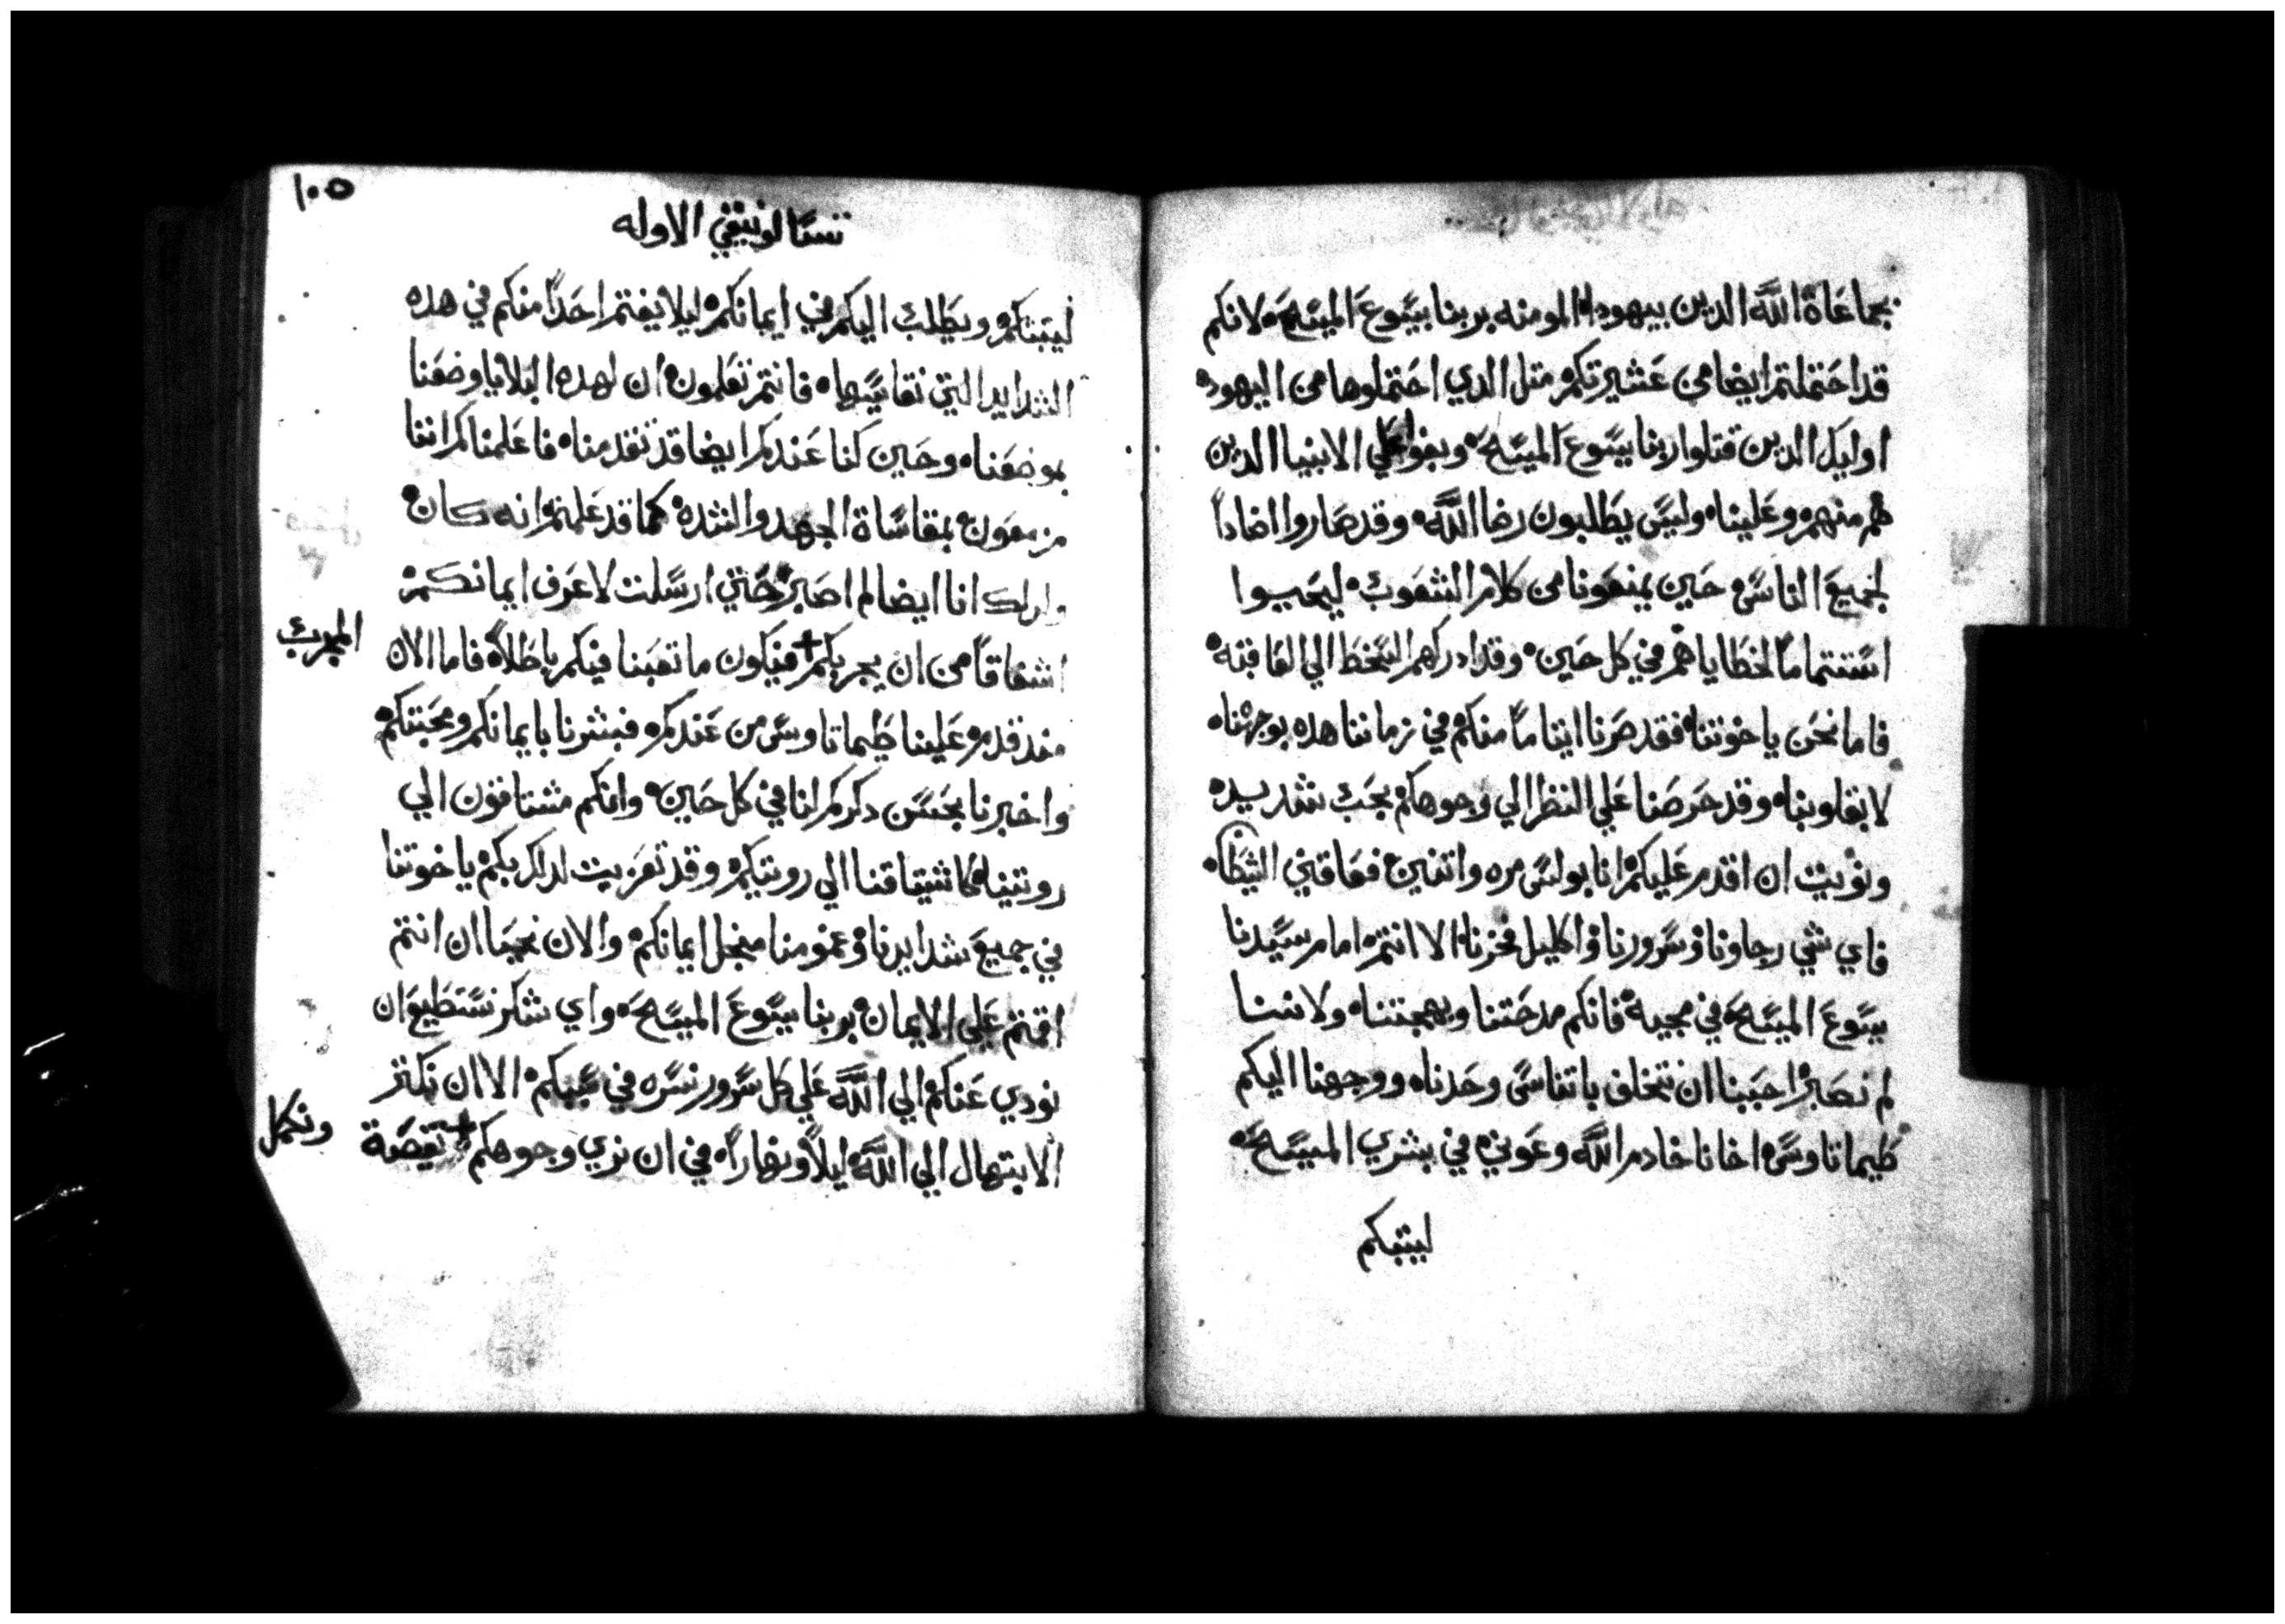 بجماعاة الله الدين بيهودا المومنه بربنا يسوع المسيح لانكم
قد احتملتم ايضا من عشيرتكم متل الدي احتملوها من اليهود
اوليك الدين قتلوا ربنا يسوع المسيح وبغوا علي الانبيا الدين
هم منهم وعلينا وليس يطلبون رضا الله وقد صاروا اضاداً
لجميع الناس حين يمنعونا من كلام الشعوب ليحيوا
استتماماً لخطاياهم في كل حين وقد ادركهم السخط الي العاقبه
فاما نحن ياخوتنا فقد صرنا ايتاماً منكم في زماننا هده بوجوهنا
لا بقلوبنا وقد حرصنا علي النظر الي وجوهكم بحب شديد
ونويت ان اقدم عليكم انا بولس مره واتنين فعاقني الشيطان
فاي شي رجاونا وسرورنا واكليل فخرنا الا انتم امام سيدنا
يسوع المسيح في مجيه فانكم مدحتنا وبهجتنا ولاننا
لم نصبر احببنا ان نتخلف باتناس وحدنا ووجهنا اليكم
طيماتاوس اخانا خادم الله وعوني في بشري المسيح
ليتبتكم
١٠٥
تسالونيقي الاوله
ليتبتكم ويطلب اليكم في ايمانكم ليلا يغتم احداً منكم في هده
الشدايد التي نقاسيها فانتم تعلمون ان لهده البلايا وضعنا
بموضعنا وحين كنا عندكم ايضا قد تقدمنا فاعلمناكم اننا
مزمعون بمقاساة الجهد والشده كما قد علمتم انه كان
ولدلك انا ايضا لم اصبر حتي ارسلت لاعرف ايمانكم
اشفاقاً من ان يجربكم + فيكون ما تعبنا فيكم باطلاً فاما الان
المجرب
مند قدم علينا طيماتاوس من عندكم فبشرنا بايمانكم ومحبتكم
واخبرنا بحسن دكركم لنا في كل حين وانكم مشتاقون الي
رويتنا كاشتياقنا الي رويتكم وقد تعزيت لدلك بكم ياخوتنا
في جميع شدايدنا وغمومنا منجل ايمانكم والان نحيا ان انتم
اقمتم علي الايمان بربنا يسوع المسيح واي شكر نستطيع ان
نودي عنكم الي الله علي كل سرور نسره في سببكم الا ان نكتر
الابتهال الي الله ليلاً ونهاراً في ان نري وجوهكم + نقصة
ونكمل